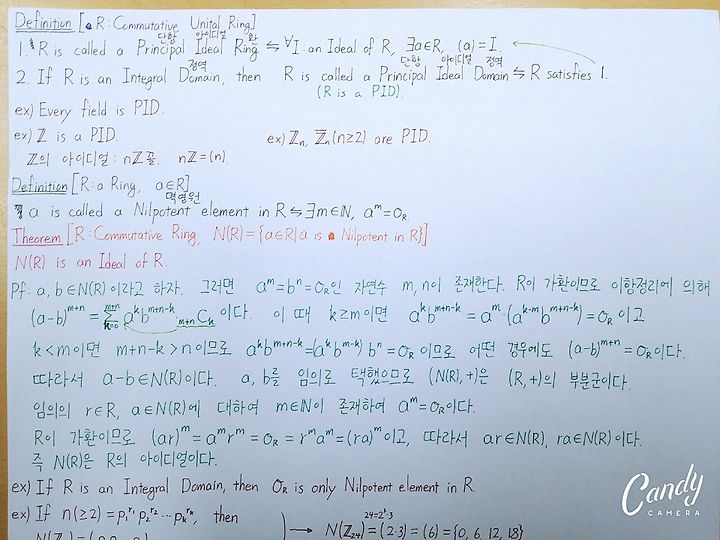 Definition [R: Commutative Unital Ring]
단항 아이디얼 환
1. R is called a Principal Ideal Ring ⇆ ∀I: an Ideal of R, ∃a∈R, (a)=I.
정역 단항 아이디얼 정역
2. If R is an Integral Domain, then R is called a Principal Ideal Domain ⇆ R satisfies 1.
(R is a PID).
ex) Every field is PID.
ex) ℤ is a PID. ex) ℤn, ℤ̅n (n≥2) are PID.
ℤ의 아이디얼: nℤ꼴. nℤ=(n).
Definition [R: a Ring, a∈R]
멱영원
a is called a Nilpotent element in R ⇆ ∃m∈ℕ, a^m=0_R
Theorem [R: Commutative Ring, N(R)={a∈R|a is Nilpotent in R}]
N(R) is an Ideal of R.
Pf: a, b∈N(R)이라고 하자. 그러면 a^m=b^n=0_R인 자연수 m, n이 존재한다. R이 가환이므로 이항정리에 의해
(a-b)^{m+n} = Σ_{k=0}^{m+n} a^k b^{m+n-k} _{m+n}C_k이다. 이 때 k≥m이면 a^k b^{m+n-k} = a^m·(a^{k-m}b^{m+n-k})=0_R이고
k<m이면 m+n-k>n이므로 a^k b^{m+n-k}=(a^k b^{m-k})b^n=0_R이므로 어떤 경우에도 (a-b)^{m+n}=0_R이다.
따라서 a-b∈N(R)이다. a, b를 임의로 택했으므로 (N(R),+)은 (R,+)의 부분군이다.
임의의 r∈R, a∈N(R)에 대하여 m∈ℕ이 존재하여 a^m=0_R이다.
R이 가환이므로 (ar)^m=a^m r^m=0_R=r^m a^m=(ra)^m이고, 따라서 ar∈N(R), ra∈N(R)이다.
즉 N(R)은 R의 아이디얼이다.
ex) If R is an Integral Domain, then 0_R is only Nilpotent element in R.
ex) If n(≥2)=p₁^{r₁}p₂^{r₂}…p_k^{r_k}, then
24=2³·3
→ N(ℤ₂₄)=(2·3)=(6)={0, 6, 12, 18}
Candy
CAMERA